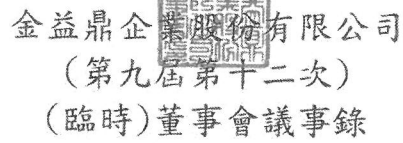 金益鼎企業股份有限公司
(第九屆第十二次)
(臨時)董事會議事錄